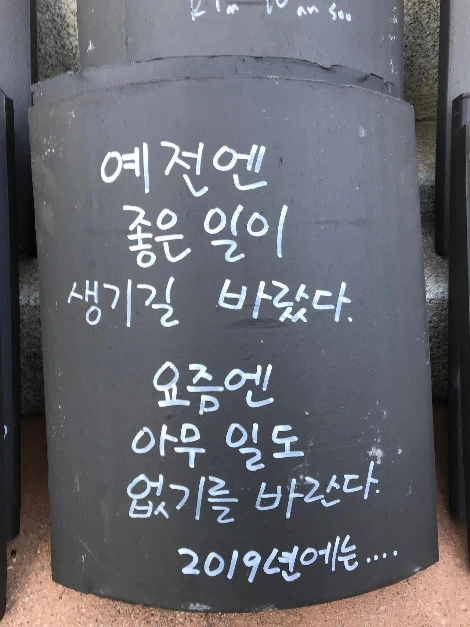 예전엔
좋은 일이
생기길 바랐다.
요즘엔
아무 일도
없기를 바란다.
2019년에는....